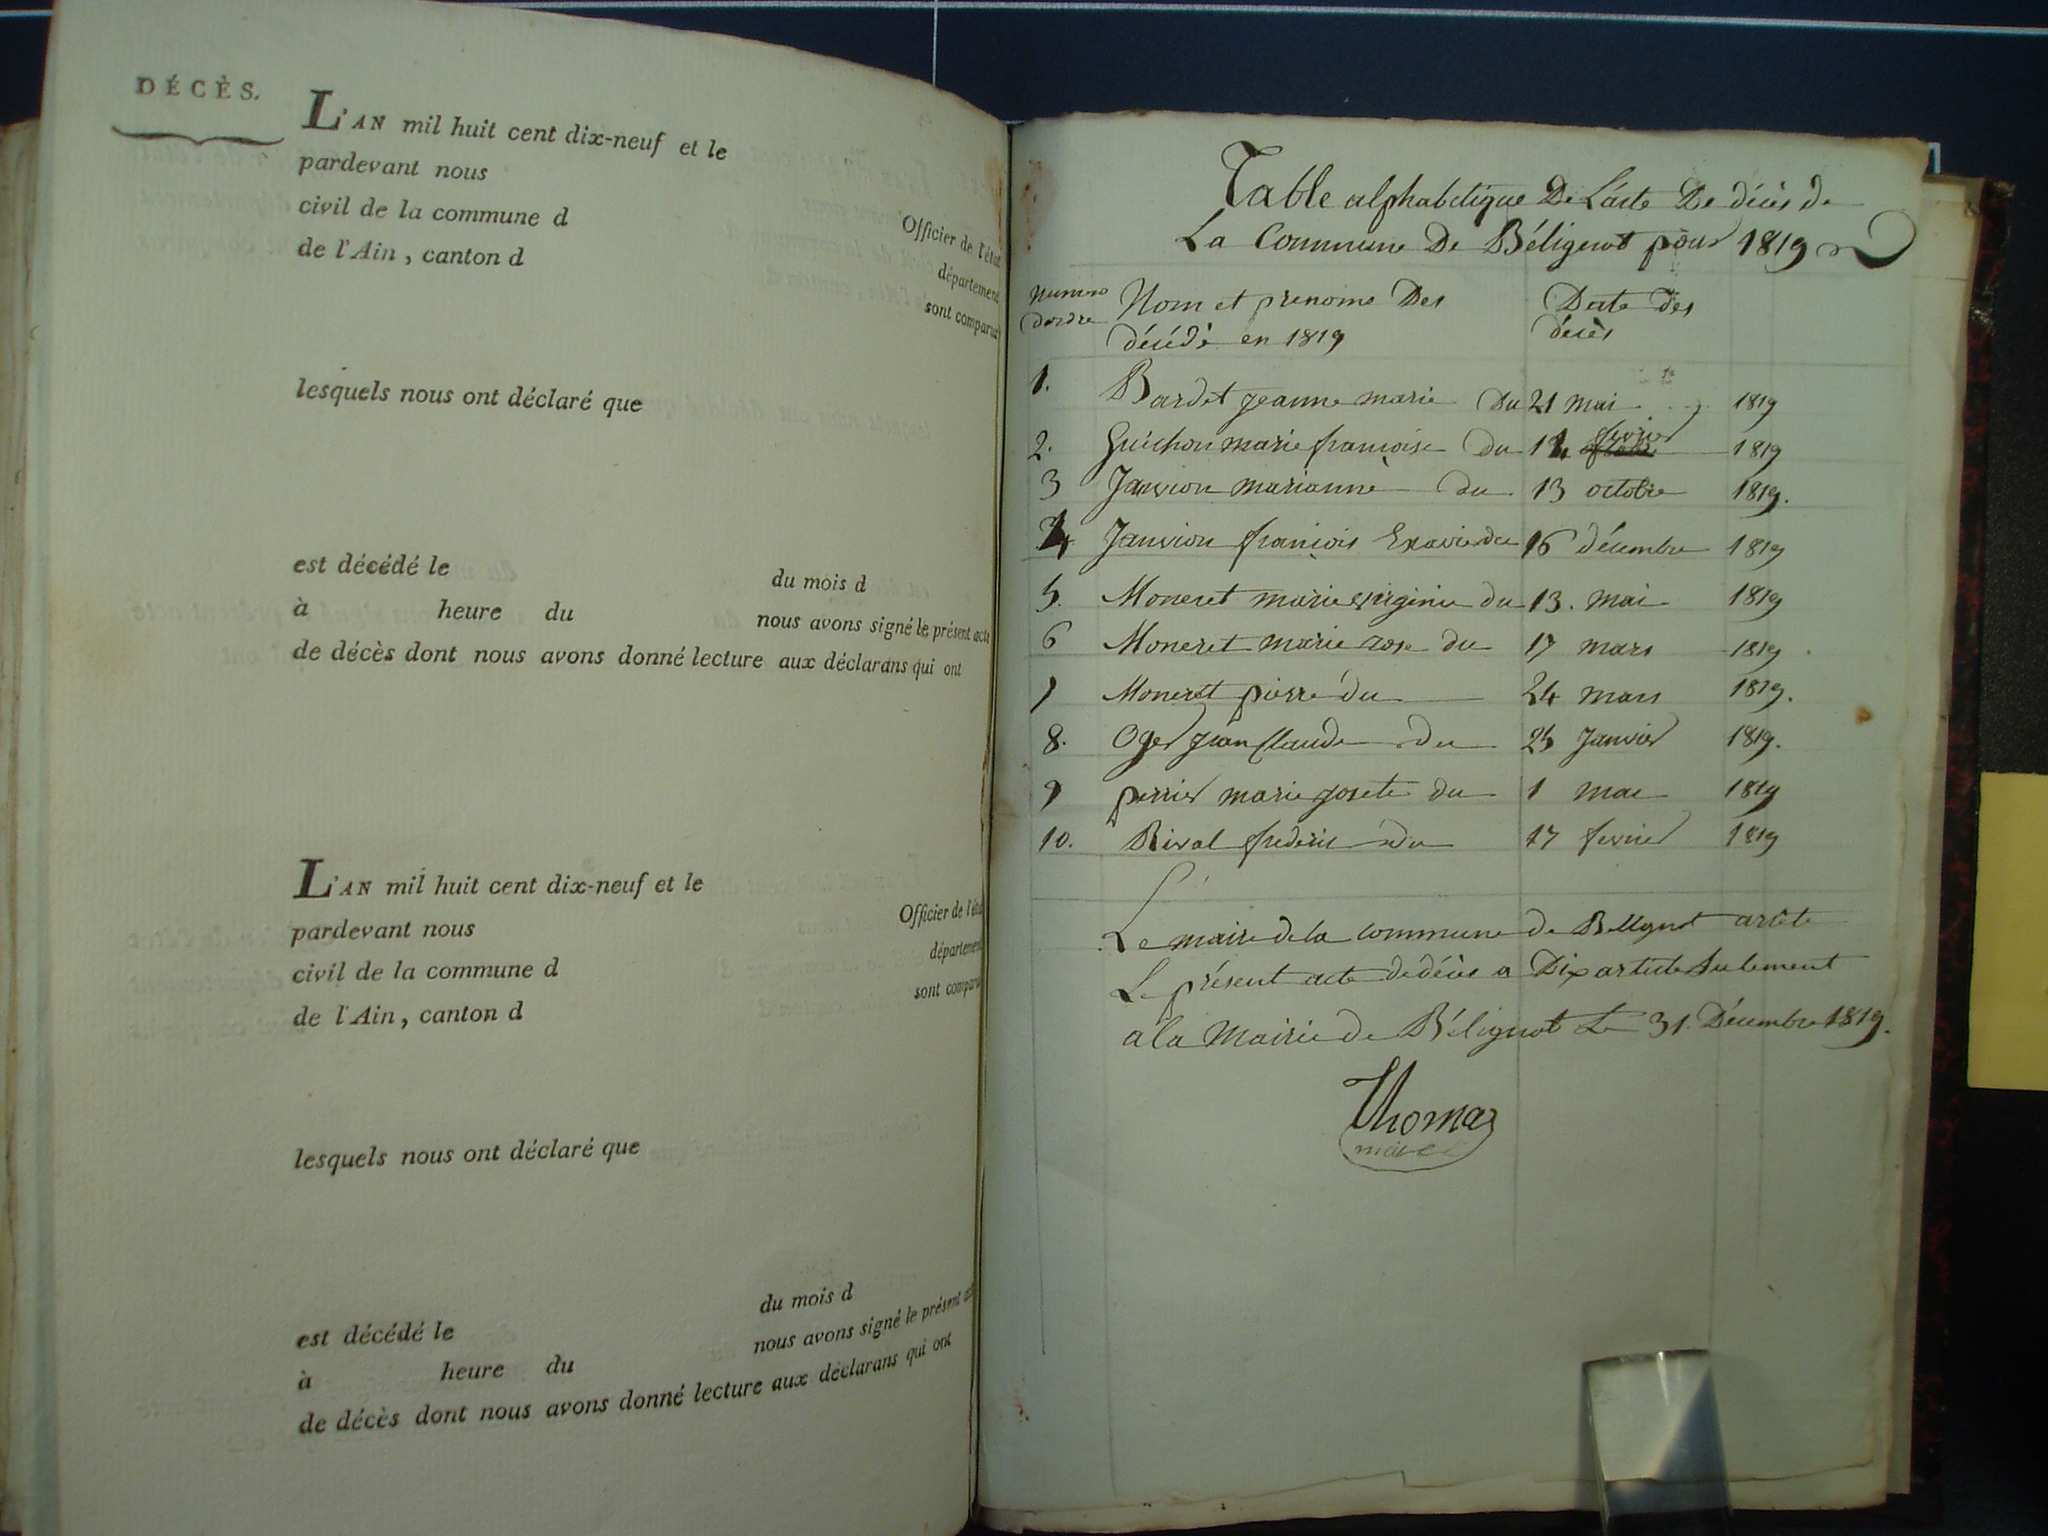 DÉCÈS.
L'AN mil huit cent dix-neuf et le
pardevant nous
Officier de l'état
civil de la commune d
département
de l'Ain, canton d
sont comparus
lesquels nous ont déclaré que
est décédé le
du mois d
à heure du
nous avons signé le présent acte
de décès dont nous avons donné lecture aux déclarans qui ont
L'AN mil huit cent dix-neuf et le
pardevant nous
Officier de l'état
civil de la commune d
département
de l'Ain, canton d
sont comparus
lesquels nous ont déclaré que
est décédé le
du mois d
à heure du
nous avons signé le présent
de décès dont nous avons donné lecture aux déclarans qui ont
Table alphabetique De L'acte De décès de
La Commune De Bélignot pour 1819
Numero Nom et prenome Des Date des
dordre décédé en 1819 décès
1. Bardet jeanne marie Du 21 mai 1819
2. Guichon marie francoise du 14 fevrier 1819
3 Janvion marianne du 13 octobre 1819.
4 Janvion francois Exavie du 16 décembre 1819
5. Moneret marie virginie du 13. mai 1819
6 Moneret marie rose du 17 mars 1819
7 Moneret pierre du 24 mars 1819.
8. Oger jean Claude du 25 Janvier 1819.
9 perrier marie josete du 1 mai 1819
10. Rival frederic du 17 fevrier 1819
Le maire de la commune de Bellignot arrête
Le présent acte de décès a Dix article seulement
a la Mairie de Bélignot Le 31. Décembre 1819.
Thomas
maire